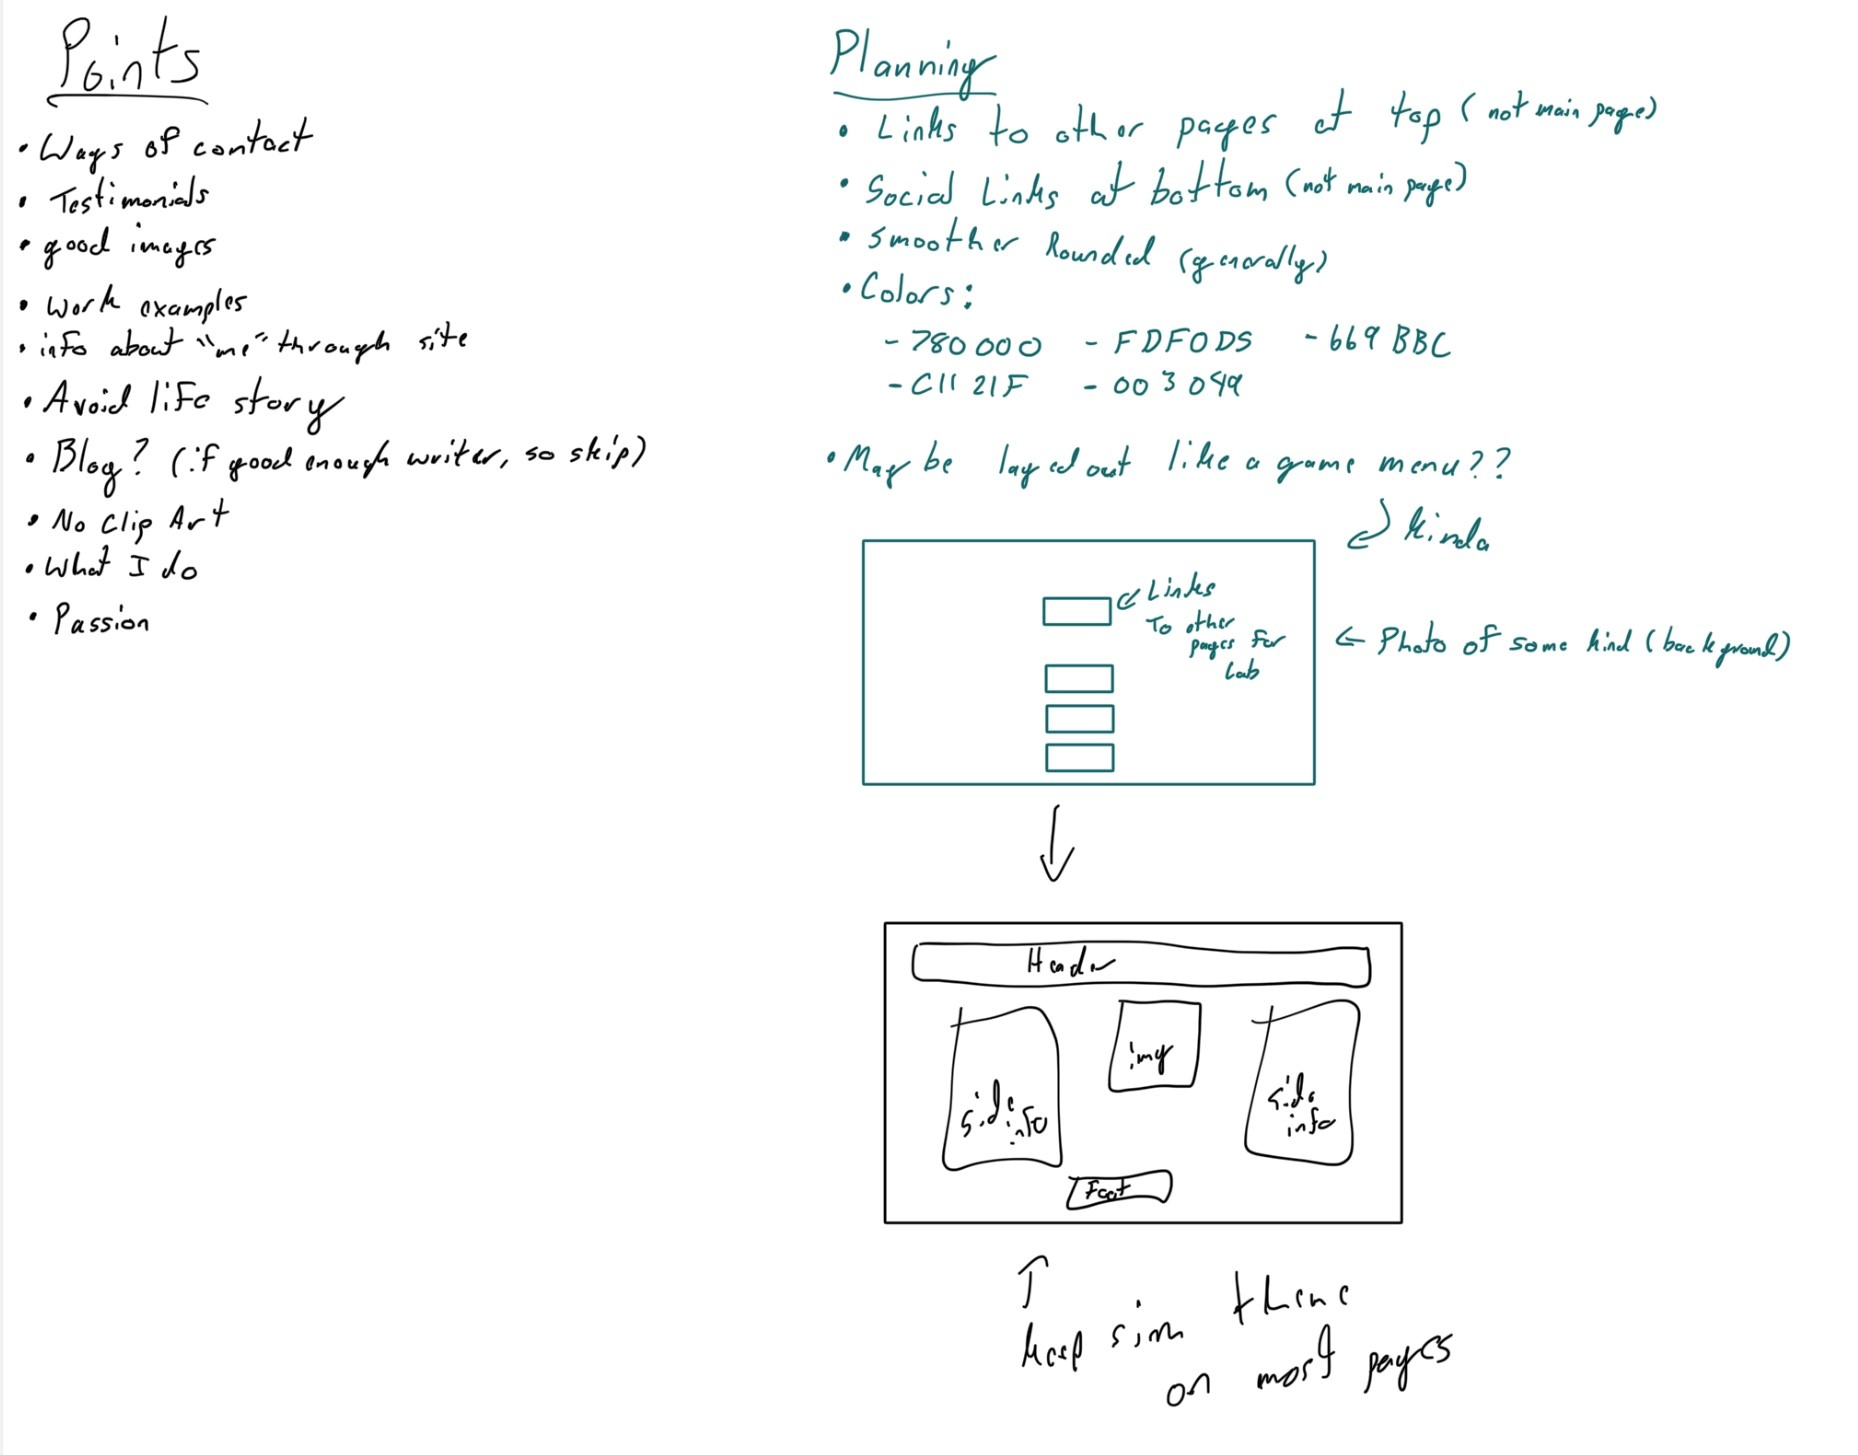 Points
• Ways of contact
• Testimonials
• good images
• Work examples
• info about "me" through site
• Avoid life story
• Blog? (if good enough writer, so skip)
• No Clip Art
• What I do
• Passion
Planning
• Links to other pages at top (not main page)
• Social Links at bottom (not main page)
• Smoother Rounded (generally)
• Colors:
- 780000 - FDF0D5 - 669BBC
- C1121F - 003049
• May be layed out like a game menu??
kinda
Links
To other
pages for
Lab
Photo of some kind (background)
Header
side
info
img
side
info
Foot
keep sim theme
on most pages